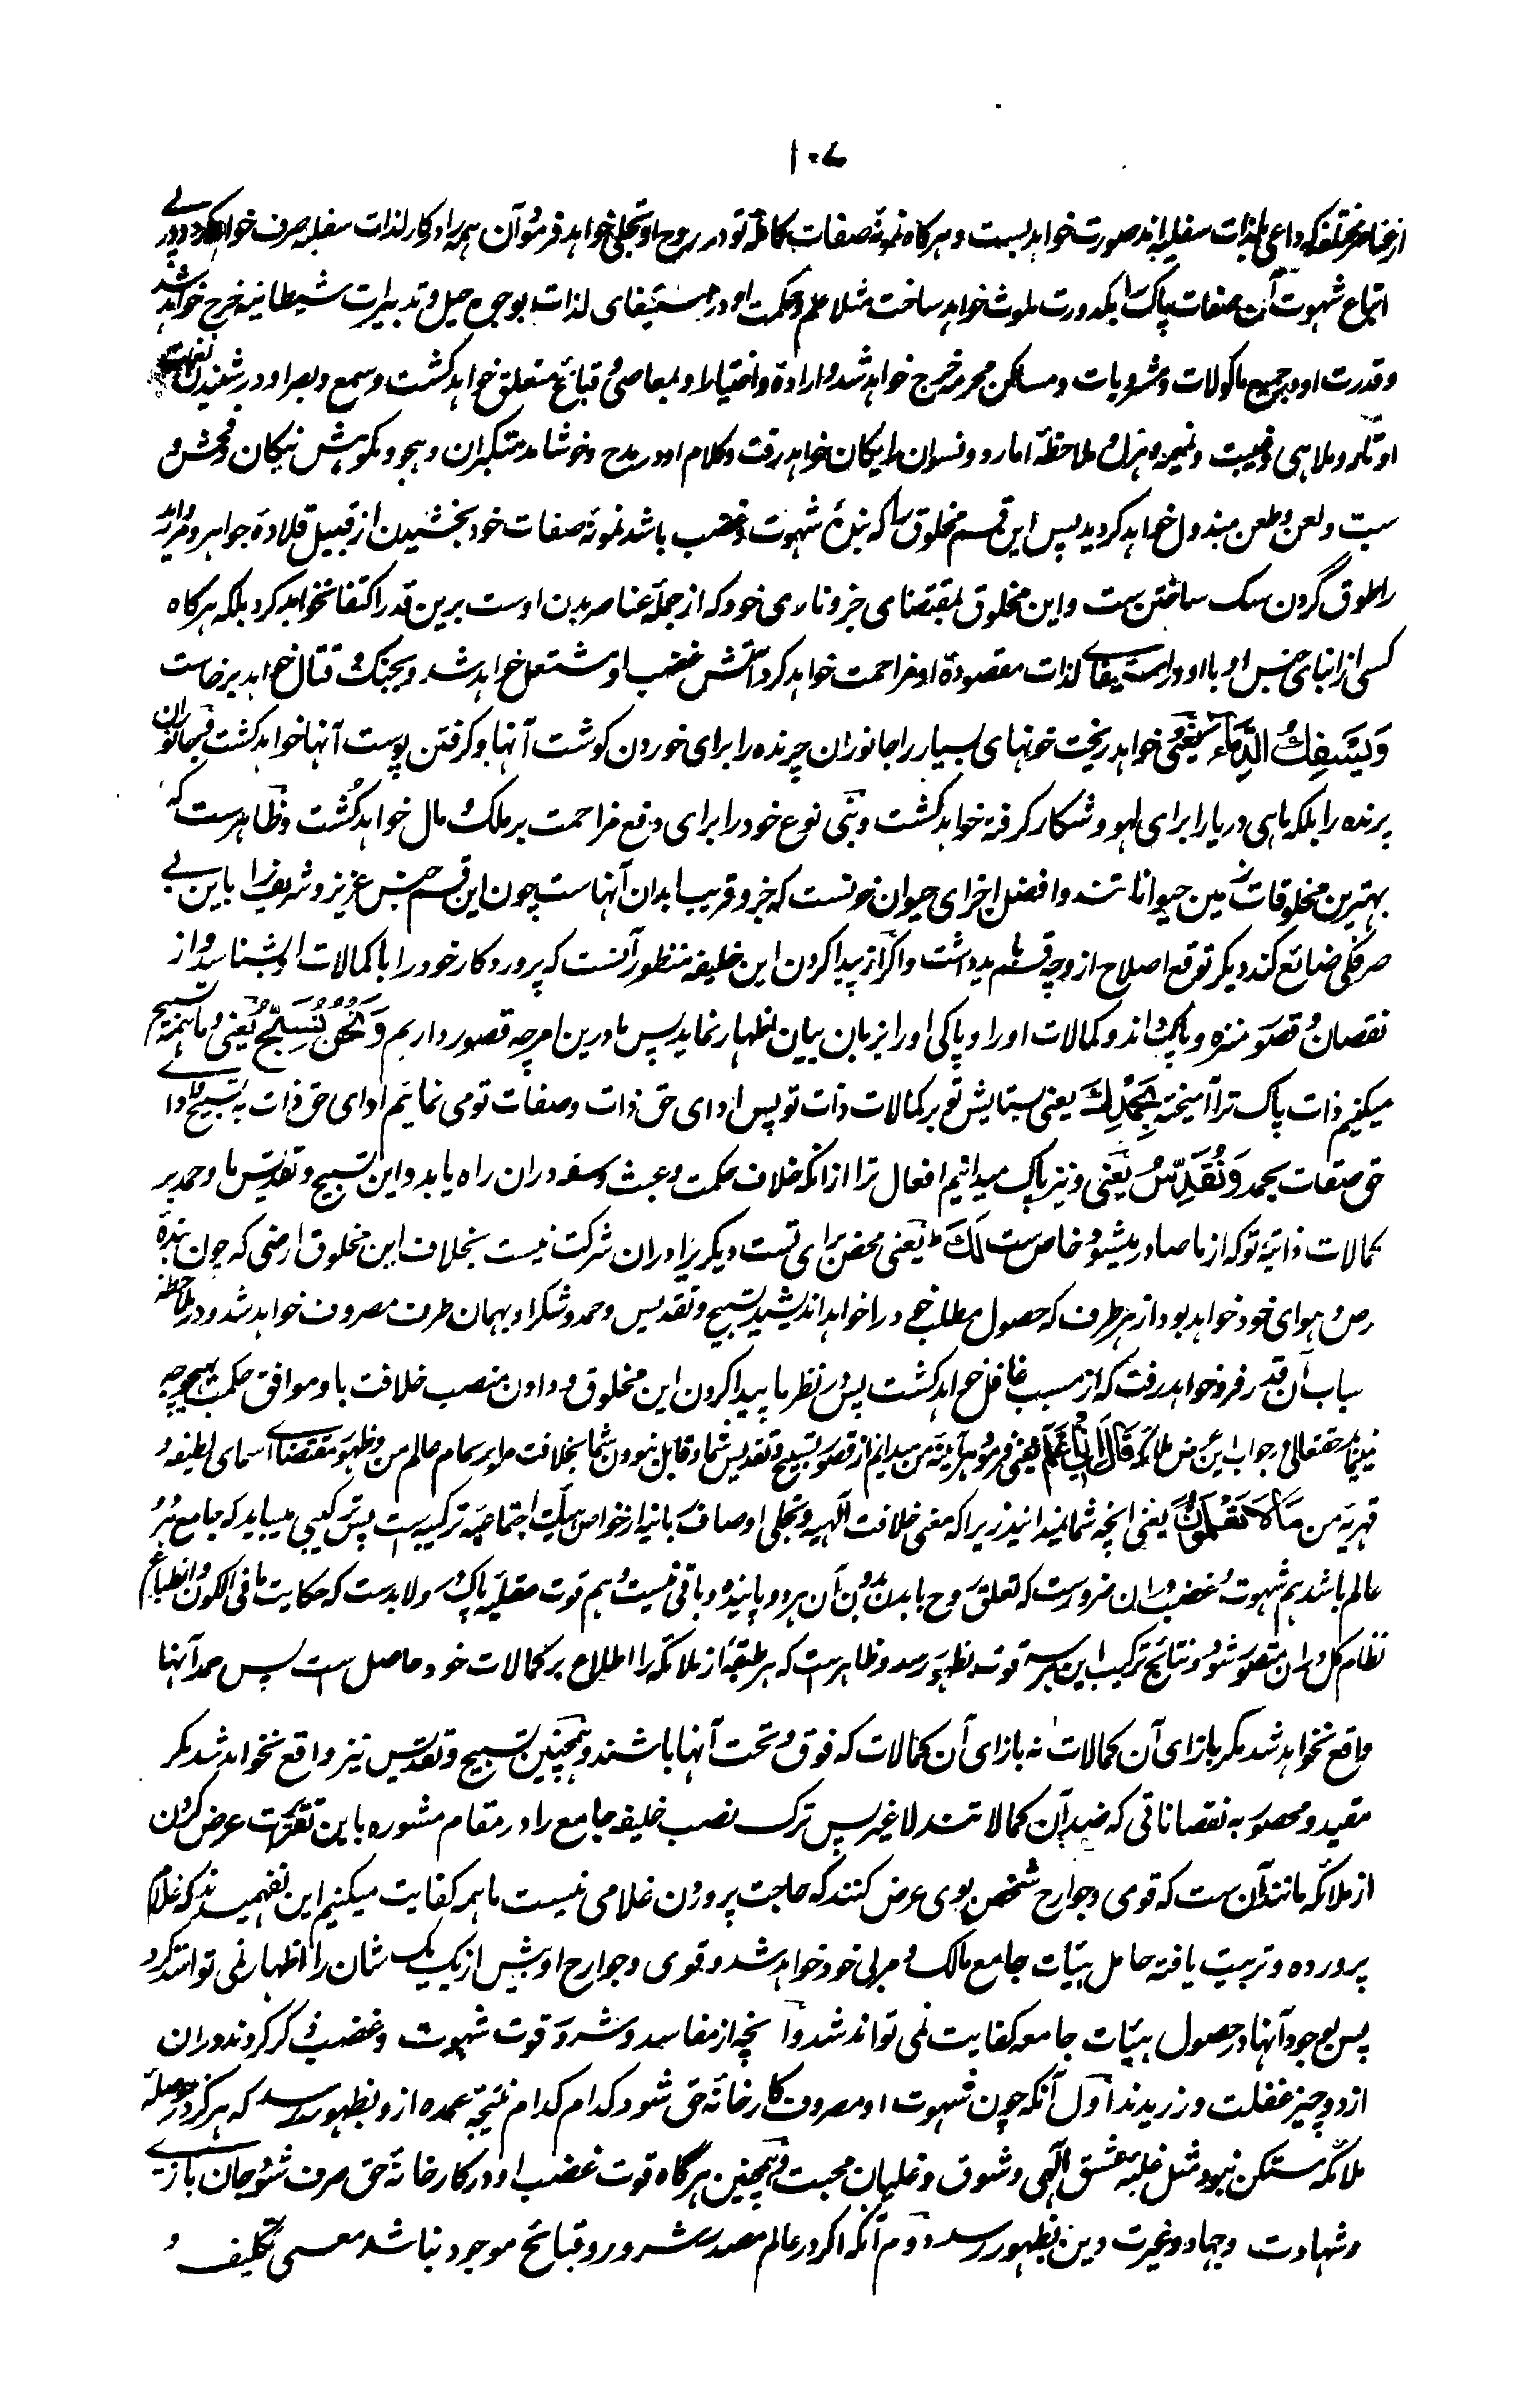 ۱۰۷
از عناصر مختلفه که داعی بلذات سفلیه اند صورت خواهد بست و هرگاه نمونهٔ صفات کاملهٔ تو در روح او تجلی خواهد فرمود آن همه را در کار لذات سفلیه صرف خواهد کرد و در پی
اتباع شهوت آن صفات پاک را بکدورت ملوث خواهد ساخت مثلا علم و حکمت او در استیفای لذات بوجوه حیل و تدبیرات شیطانیه خرج خواهد شد
و قدرت او در جمیع ماکولات و مشروبات و مساکن محرمه خرج خواهد شد و اراده و اختیار او بمعاصی و قبائح متعلق خواهد گشت و سمع و بصر او در شنیدن نغمات
اوتار و ملاهی و غیبت و نمیمه و هزل و ملاحظهٔ امارد و نسوان رایگان خواهد رفت و کلام او در مدح و خوشامد متکبران و هجو و نکوهش نیکان و فحش و
سب و لعن و طعن مبذول خواهد گردید پس این قسم مخلوق را که بندهٔ شهوت و غضب باشد نمونهٔ صفات خود بخشیدن از قبیل قلادهٔ جواهر و مروارید
را طوق گردن سگ ساختن ست و این مخلوق بمقتضای جزو ناری خود که از جملهٔ عناصر بدن اوست برین قدر اکتفا نخواهد کرد بلکه هرگاه
کسی از ابنای جنس او با او در استیفای لذات مقصودهٔ او مزاحمت خواهد کرد آتش غضب او مشتعل خواهد شد و بجنگ و قتال خواهد برخاست
وَيَسْفِكُ الدِّمَاءَ یعنی و خواهد ریخت خونهای بسیار را جانوران چرنده را برای خوردن گوشت آنها و گرفتن پوست آنها خواهد کشت و جانوران
پرنده را بلکه ماهی دریا را برای لهو و شکار گرفته خواهد کشت و بنی نوع خود را برای دفع مزاحمت بر ملک و مال خواهد کُشت و ظاهرست که
بهترین مخلوقات زمین حیوانا تند و افضل اجزای حیوان خونست که جزو قریب ابدان آنهاست چون این قسم جنس عزیز و شریف را باین بی
صرفگی ضائع کند دیگر توقع اصلاح از و چه قسم باید داشت و اگر از پیدا کردن این خلیفه منظور آنست که پروردگار خود را با کمالات او بشناسد و از
نقصان و قصور منزه و پاک داند و کمالات او را و پاکی او را بزبان بیان اظهار نماید پس ما درین امر چه قصور داریم وَنَحْنُ نُسَبِّحُ یعنی و ما همه تسبیح
میکنیم ذات پاک ترا آمیخته بِحَمْدِكَ یعنی بستایش تو بر کمالات ذات تو پس ادای حق ذات و صفات تو می نمائیم ادای حق ذات به تسبیح و ادا
حق صفات بحمد وَنُقَدِّسُ یعنی و نیز پاک میدانیم افعال ترا از انکه خلاف حکمت و عبث و سفه دران راه یابد و این تسبیح و تقدیس ما و حمد بر
کمالات ذاتیهٔ تو که از ما صادر میشود خاص ست لَكَ یعنی محض برای تست دیگر یرا دران شرکت نیست بخلاف این مخلوق ارضی که چون بندهٔ
رص و هوای خود خواهد بود از هر طرف که حصول مطلب خود را خواهد اندیشید تسبیح و تقدیس و حمد و شکر او بهمان طرف مصروف خواهد شد و در ملاحظه
سباب آن قدر فرو خواهد رفت که از مسبب غافل خواهد گشت پس در نظر ما پیدا کردن این مخلوق و دادن منصب خلافت باو موافق حکمت بهیچوجه
نمینماید حقتعالی در جواب این عرض ملائکه قَالَ اِنِّي اَعْلَمُ یعنی فرمود هر آئینه من میدانم از قصور تسبیح و تقدیس شما و قابل نبودن شما بخلافت ما بر تمام عالم من و ظهور مقتضای اسمای لطیفه و
قهریه من مَا لَا تَعْلَمُونَ یعنی انچه شما نمیدانید زیرا که معنی خلافت الٰهیه و تجلی اوصاف ربانیه از خواص هیأت اجتماعیه ترکیبیه است پس ترکیبی میباید که جامع هر دو
عالم باشد هم شهوت و غضب دران ضرورست که تعلق روح با بدن بدون آن هر دو پاینده و باقی نیست و هم قوت عقلیه پاک و لابدست که حکایت ما فی الکون و انطباع
نظام کل دران متصور شود و نتائج ترکیب این هر سه قوت بظهور رسد و ظاهرست که هر طبقه از ملائکه را اطلاع بر کمالات خود حاصل است پس حمد آنها
واقع نخواهد شد مگر بازای آن کمالات نه بازای آن کمالات که فوق و تحت آنها باشند و همچنین تسبیح و تقدیس نیز واقع نخواهد شد مگر
مقید و محصور به نقصاناتی که ضد آن کمالاتند لا غیر پس ترک نصب خلیفه جامع را در مقام مشوره باین تقریرات عرض کردن
از ملائکه مانند آن ست که قوی و جوارح شخص بوی عرض کنند که حاجت پروردن غلامی نیست ما همه کفایت میکنیم این نفهمیدند که غلام
پرورده و تربیت یافته حامل هیئات جامع مالک و مربی خود خواهد شد و قوی و جوارح او بیش از یک یک شان را اظهار نمی توانند کرد
پس بوجود آنها در حصول هیئات جامعه کفایت نمی تواند شد و انچه از مفاسد و شرور قوت شهوت و غضب ذکر کردند دران
از دو چیز غفلت ورزیدند اول آنکه چون شهوت او مصروف کارخانهٔ حق شود کدام کدام نتیجهٔ عمده از و بظهور رسد که هرگز در حوصلهٔ
ملائکه ستکن نبود مثل غلبه عشق الٰهی و شوق و غلیان محبت و همچنین هرگاه قوت غضب او در کارخانهٔ حق صرف شود جان بازی
و شهادت و جهاد و غیرت دین بظهور رسد دوم آنکه اگر در عالم مصدر شرور و قبائح موجود نباشد معنی تکلیف و